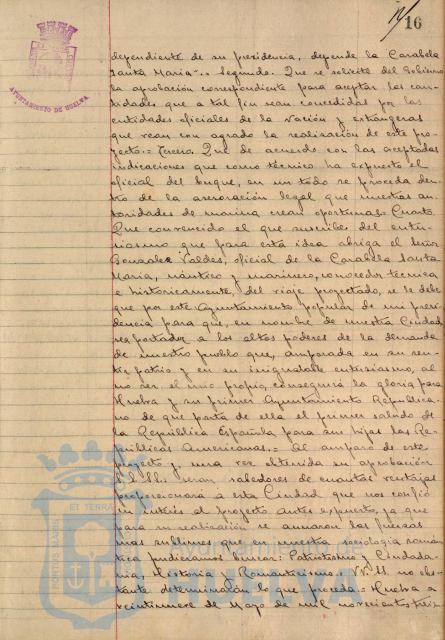 16
AYUNTAMIENTO DE HUELVA
dependiente de su presidencia, depende la Carabela
Santa Maria.- Segundo. Que se solicite del Gobierno
la aprobación correspondiente para aceptar las can-
tidades que a tal fin sean concedidas por las
entidades oficiales de la Nación y estrangeras
que vean con agrado la realización de este pro-
yecto.= Tercero. Que de acuerdo con las aceptadas
indicaciones que como técnico ha expuesto el
oficial del buque, en un todo se proceda den-
tro de la asesoración legal que nuestras au-
toridades de marina crean oportunas. Cuarto.
Que convencido el que suscribe del entu-
siasmo que para esta idea abriga el Señor
Gonzalez Valdes, oficial de la Carabela Santa
Maria, náutico y marinero, conocedor técnica
e históricamente, del viaje projectado, se le debe
que por este Ayuntamiento popular de mi presi-
dencia para que, en nombre de nuestra Ciudad
sea portador a los altos poderes de la demanda
de nuestro pueblo que, amparada en su sen-
tir patrio y en su inigualable entusiasmo, al
no ser el mio propio, conseguirá la gloria para
Huelva y su primer Ayuntamiento Republica-
no de que parta de ella el primer saludo de
la República Española para sus hijas las Re-
públicas Americanas.= Al amparo de este
proyecto y una vez obtenida su aprobación
S.S. I.I. seran sabedores de cuantas ventajas
proporcionara a esta Ciudad que nos confió
su interés el proyecto antes expuesto, ya que
para su realización se aunaron las fuerzas
mas sublimes que en nuestra sociologia roman-
tica pudieramos buscar: Patriotismo y Ciudada-
nia, Historia y Romanticismo.= VV. SS. no obs-
tante determinarán lo que proceda.= Huelva a
veintinueve de Mayo de mil novecientos trein